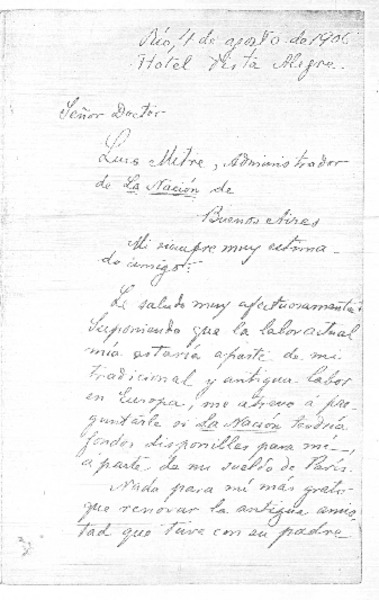 Río, 4 de agosto de 1906
Hotel Vista Alegre.
Señor Doctor
Luis Mitre, Administrador
de La Nación de
Buenos Aires
Mi siempre muy estima-
do amigo:
Le saludo muy afectuosamente.
Suponiendo que la labor actual
mía estaría aparte de mi
tradicional y antigua labor
en Europa, me atrevo á pre-
guntarle si La Nación tendría
fondos disponibles para mí—,
á parte de mi sueldo de París.
Nada para mí más grato
que renovar la antigua amis-
tad que tuve con su padre